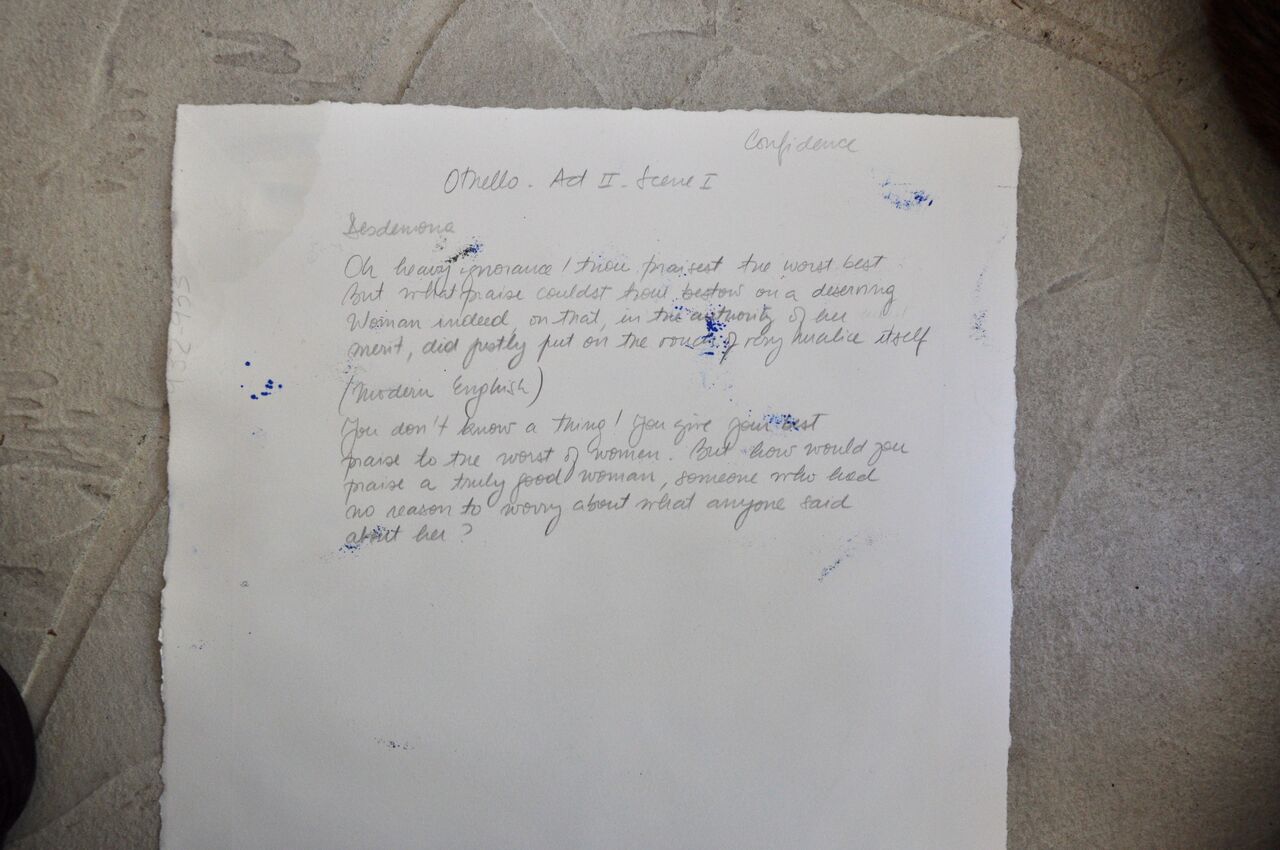 Confidence
Othello - Act II - Scene I
Desdemona
Oh heavy ignorance! thou praisest the worst best
But what praise couldst thou bestow on a deserving
Woman indeed, on that, in the authority of her
merit, did justly put on the vouch of very malice itself
(Modern English)
You don't know a thing! You give your best
praise to the worst of women. But how would you
praise a truly good woman, someone who had
no reason to worry about what anyone said
about her?